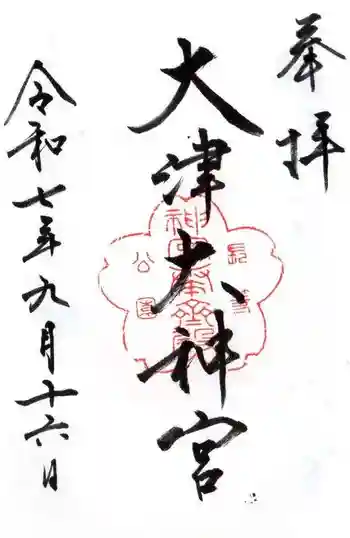 奉拝
大津大神宮
令和七年九月十六日
公園